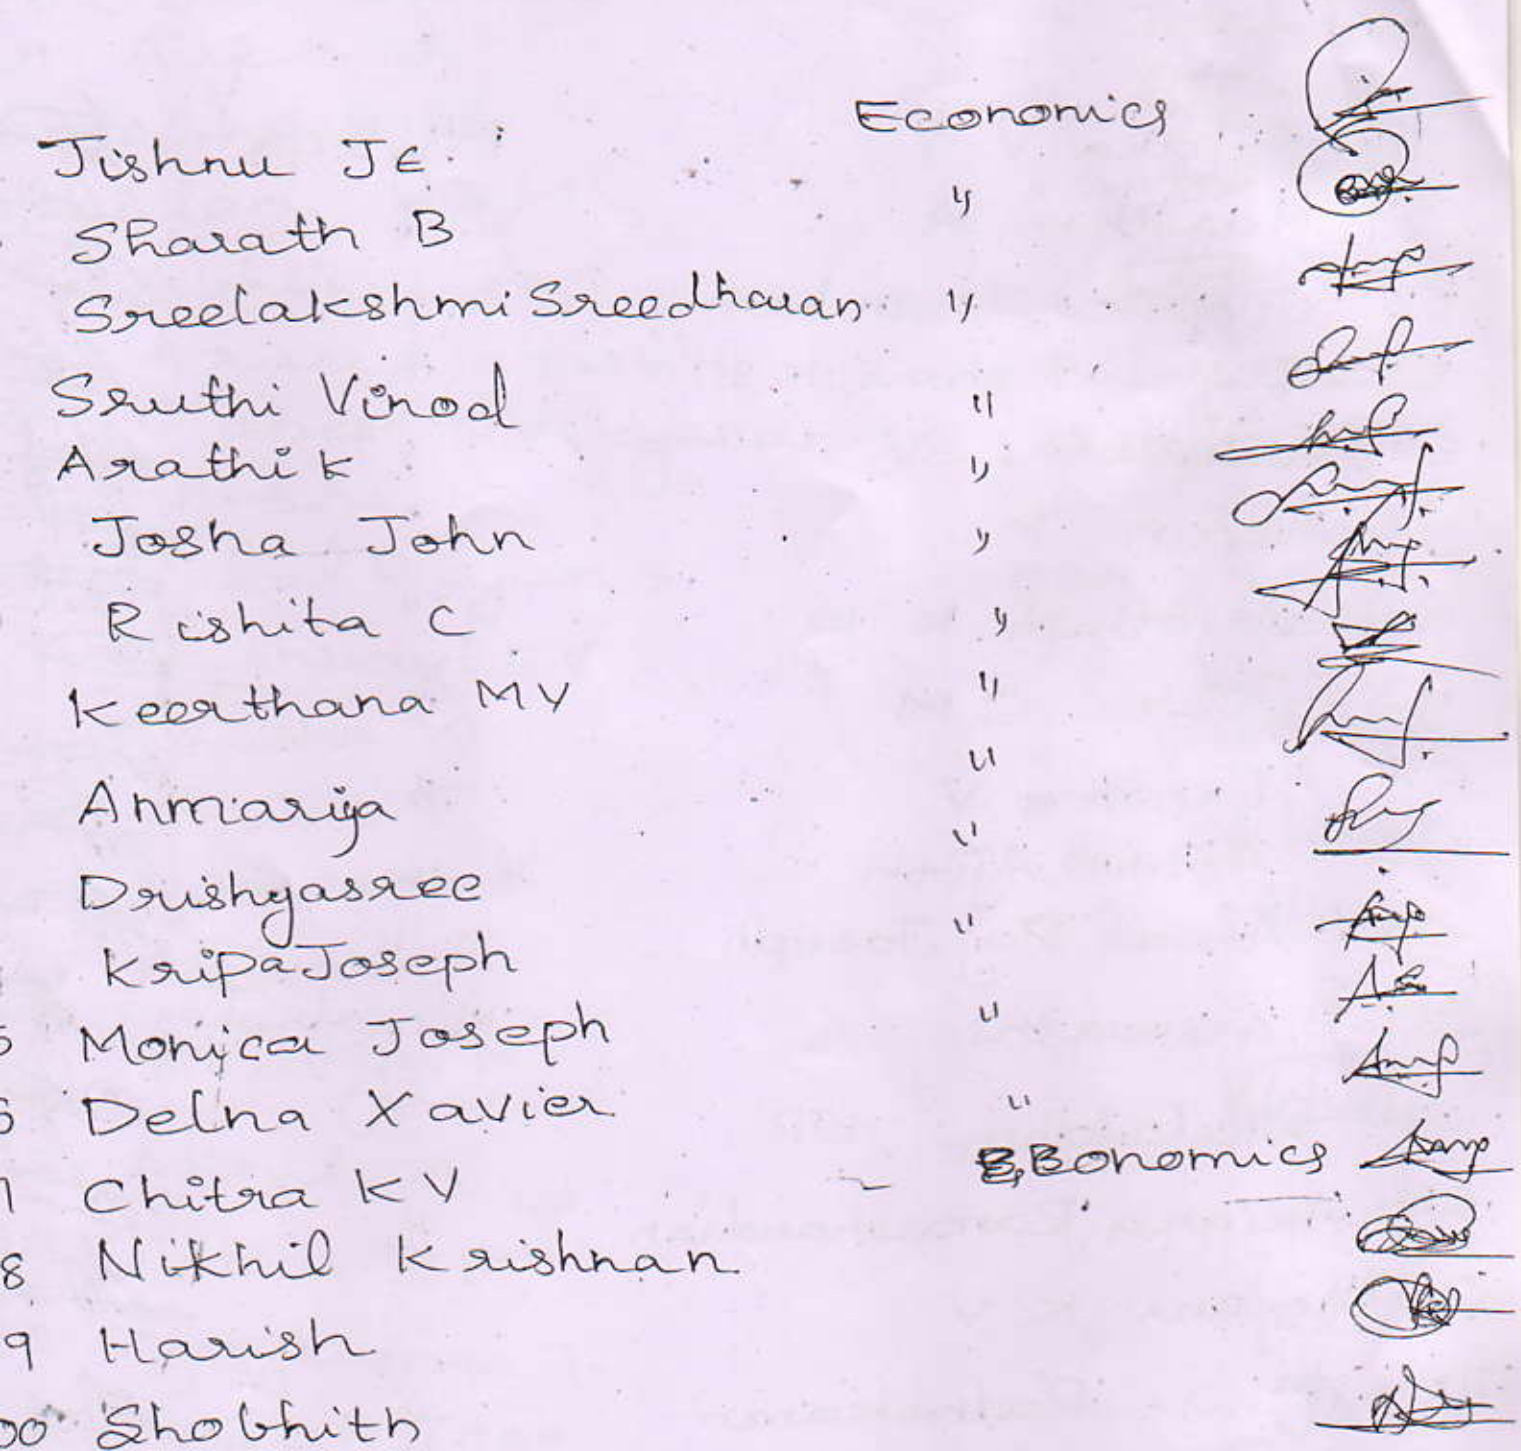 Jishnu J E Economics
Sharath B "
Sreelakshmi Sreedharan "
Sruthi Vinod "
Arathi K "
Josha John "
Rishita C "
Keerthana M V "
Anmariya "
Drishyasree "
Kripa Joseph "
Monica Joseph "
Delna Xavier "
Chitra K V Economics
8 Nikhil Krishnan
9 Harish
00 Shobhith